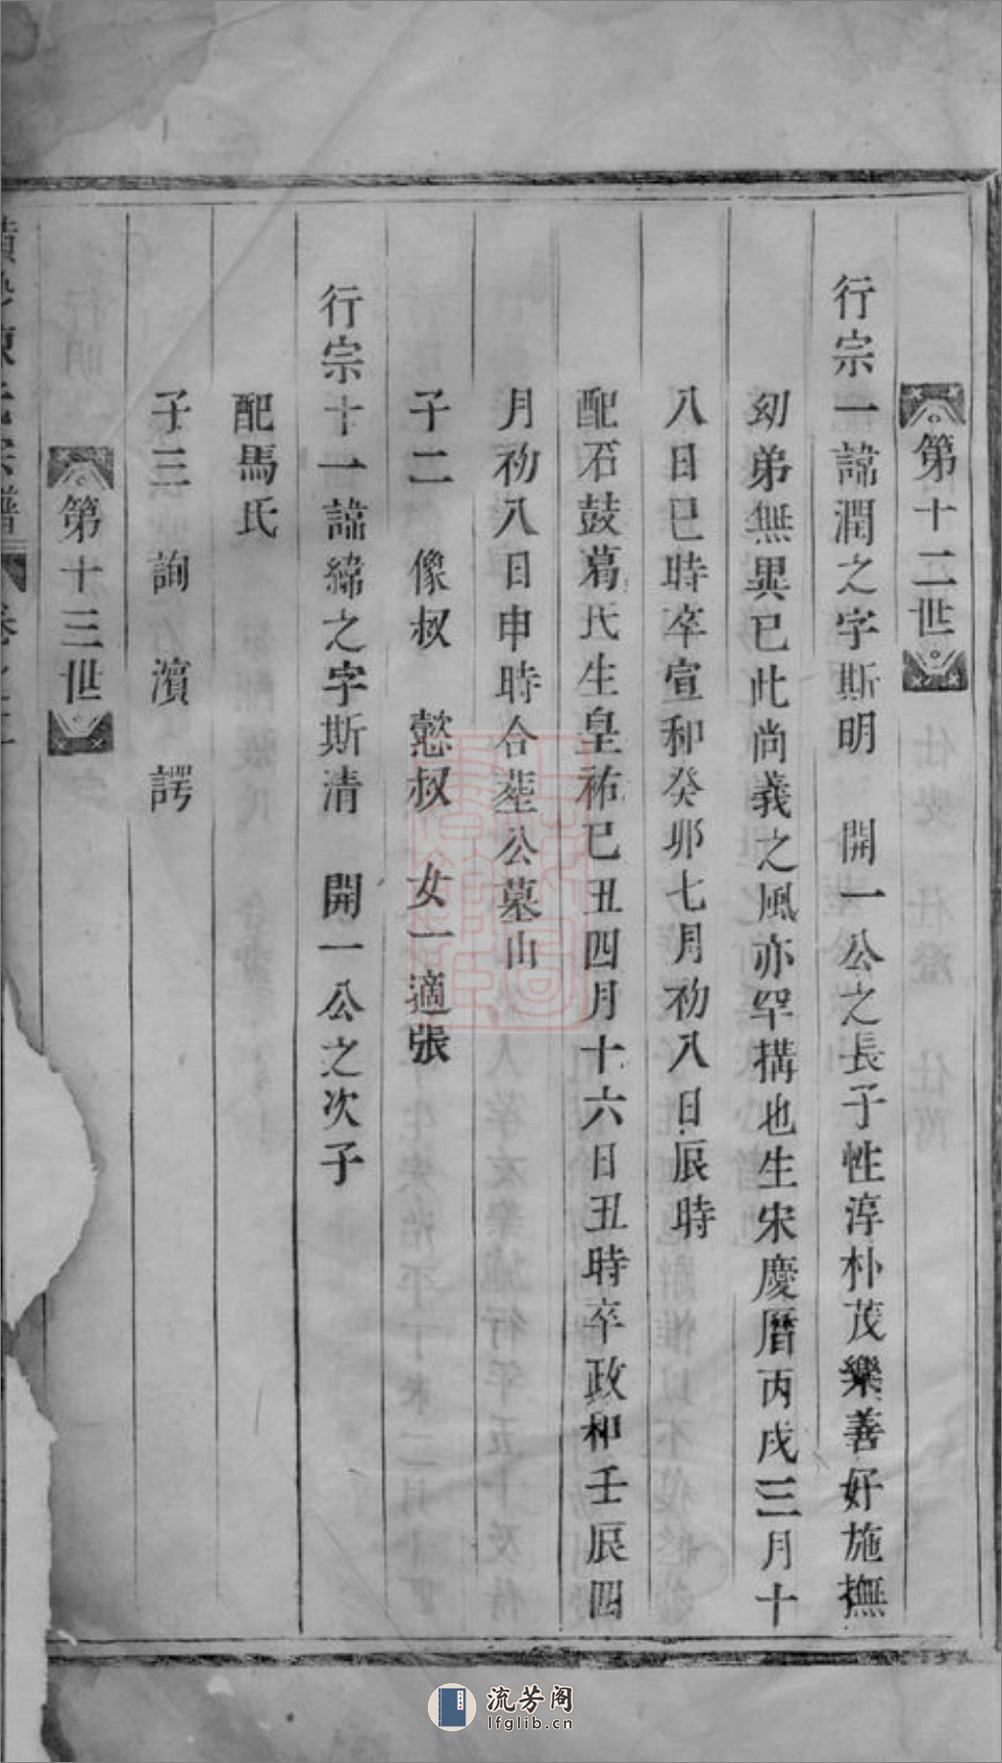 第十二世
行宗一諱潤之字斯明　開一公之長子性淳朴茂樂善好施撫
幼弟無異已此尚義之風亦罕搆也生宋慶曆丙戌三月十
八日巳時卒宣和癸卯七月初八日辰時
配石鼓葛氏生皇祐己丑四月十六日丑時卒政和壬辰四
月初八日申時合塟公墓山
子二　像叔　懿叔　女一適張
行宗十一諱緯之字斯清　開一公之次子
配馬氏
子三　詢　濱　諤
第十三世
陳氏宗譜
流芳阁
lfglib.cn